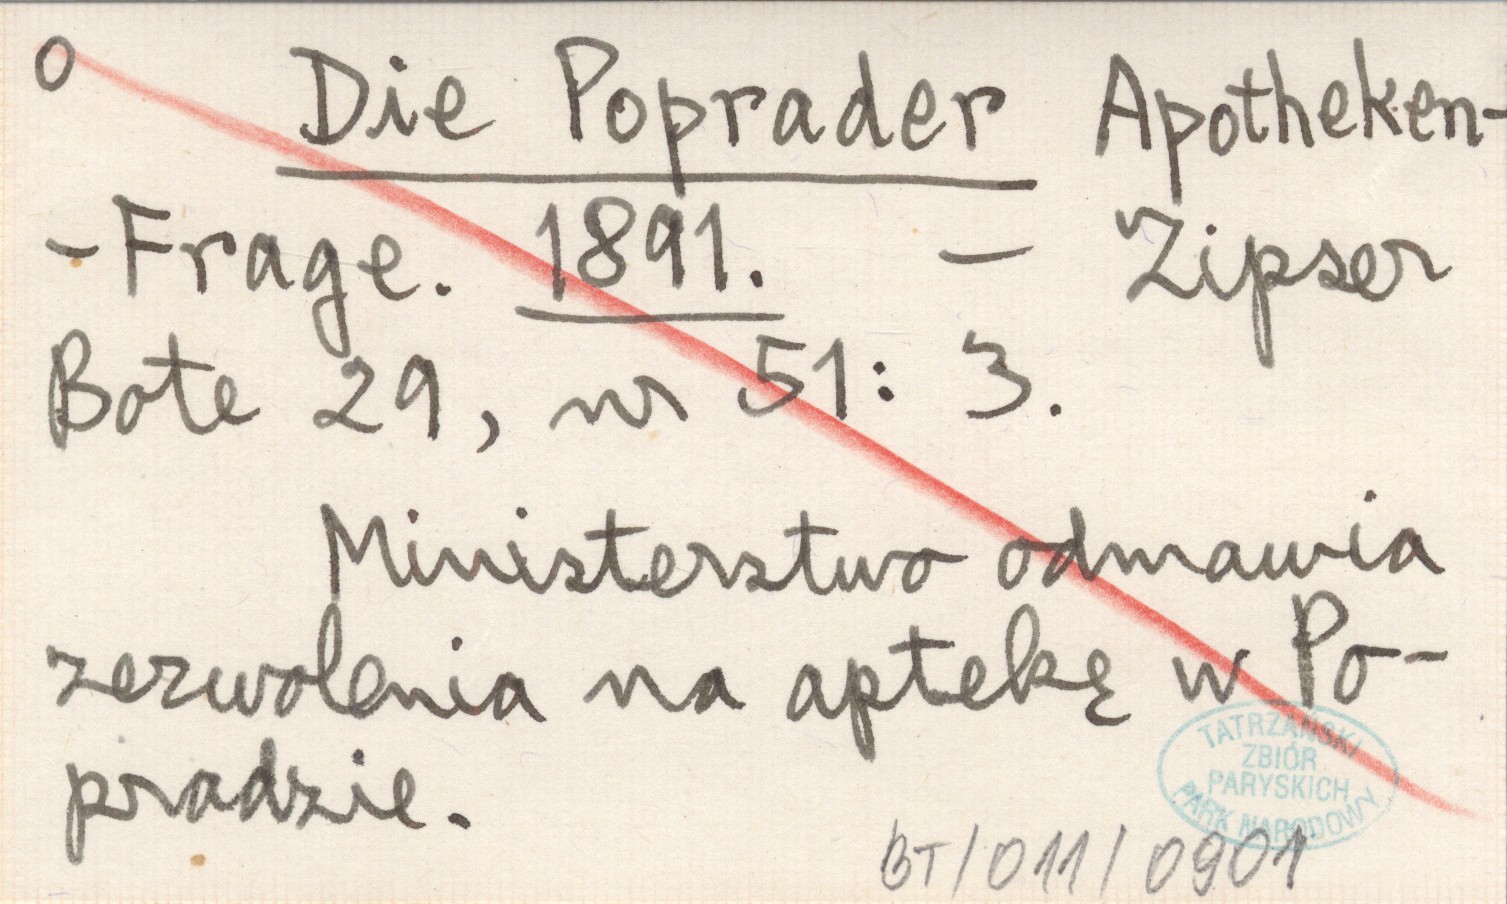 o Die Poprader Apotheken-
-Frage. 1891. – Zipser
Bote 29, nr 51: 3.
Ministerstwo odmawia
zezwolenia na aptekę w Po-
pradzie.
TATRZAŃSKI
ZBIÓR
PARYSKICH
PARK NARODOWY
BT/011/0901